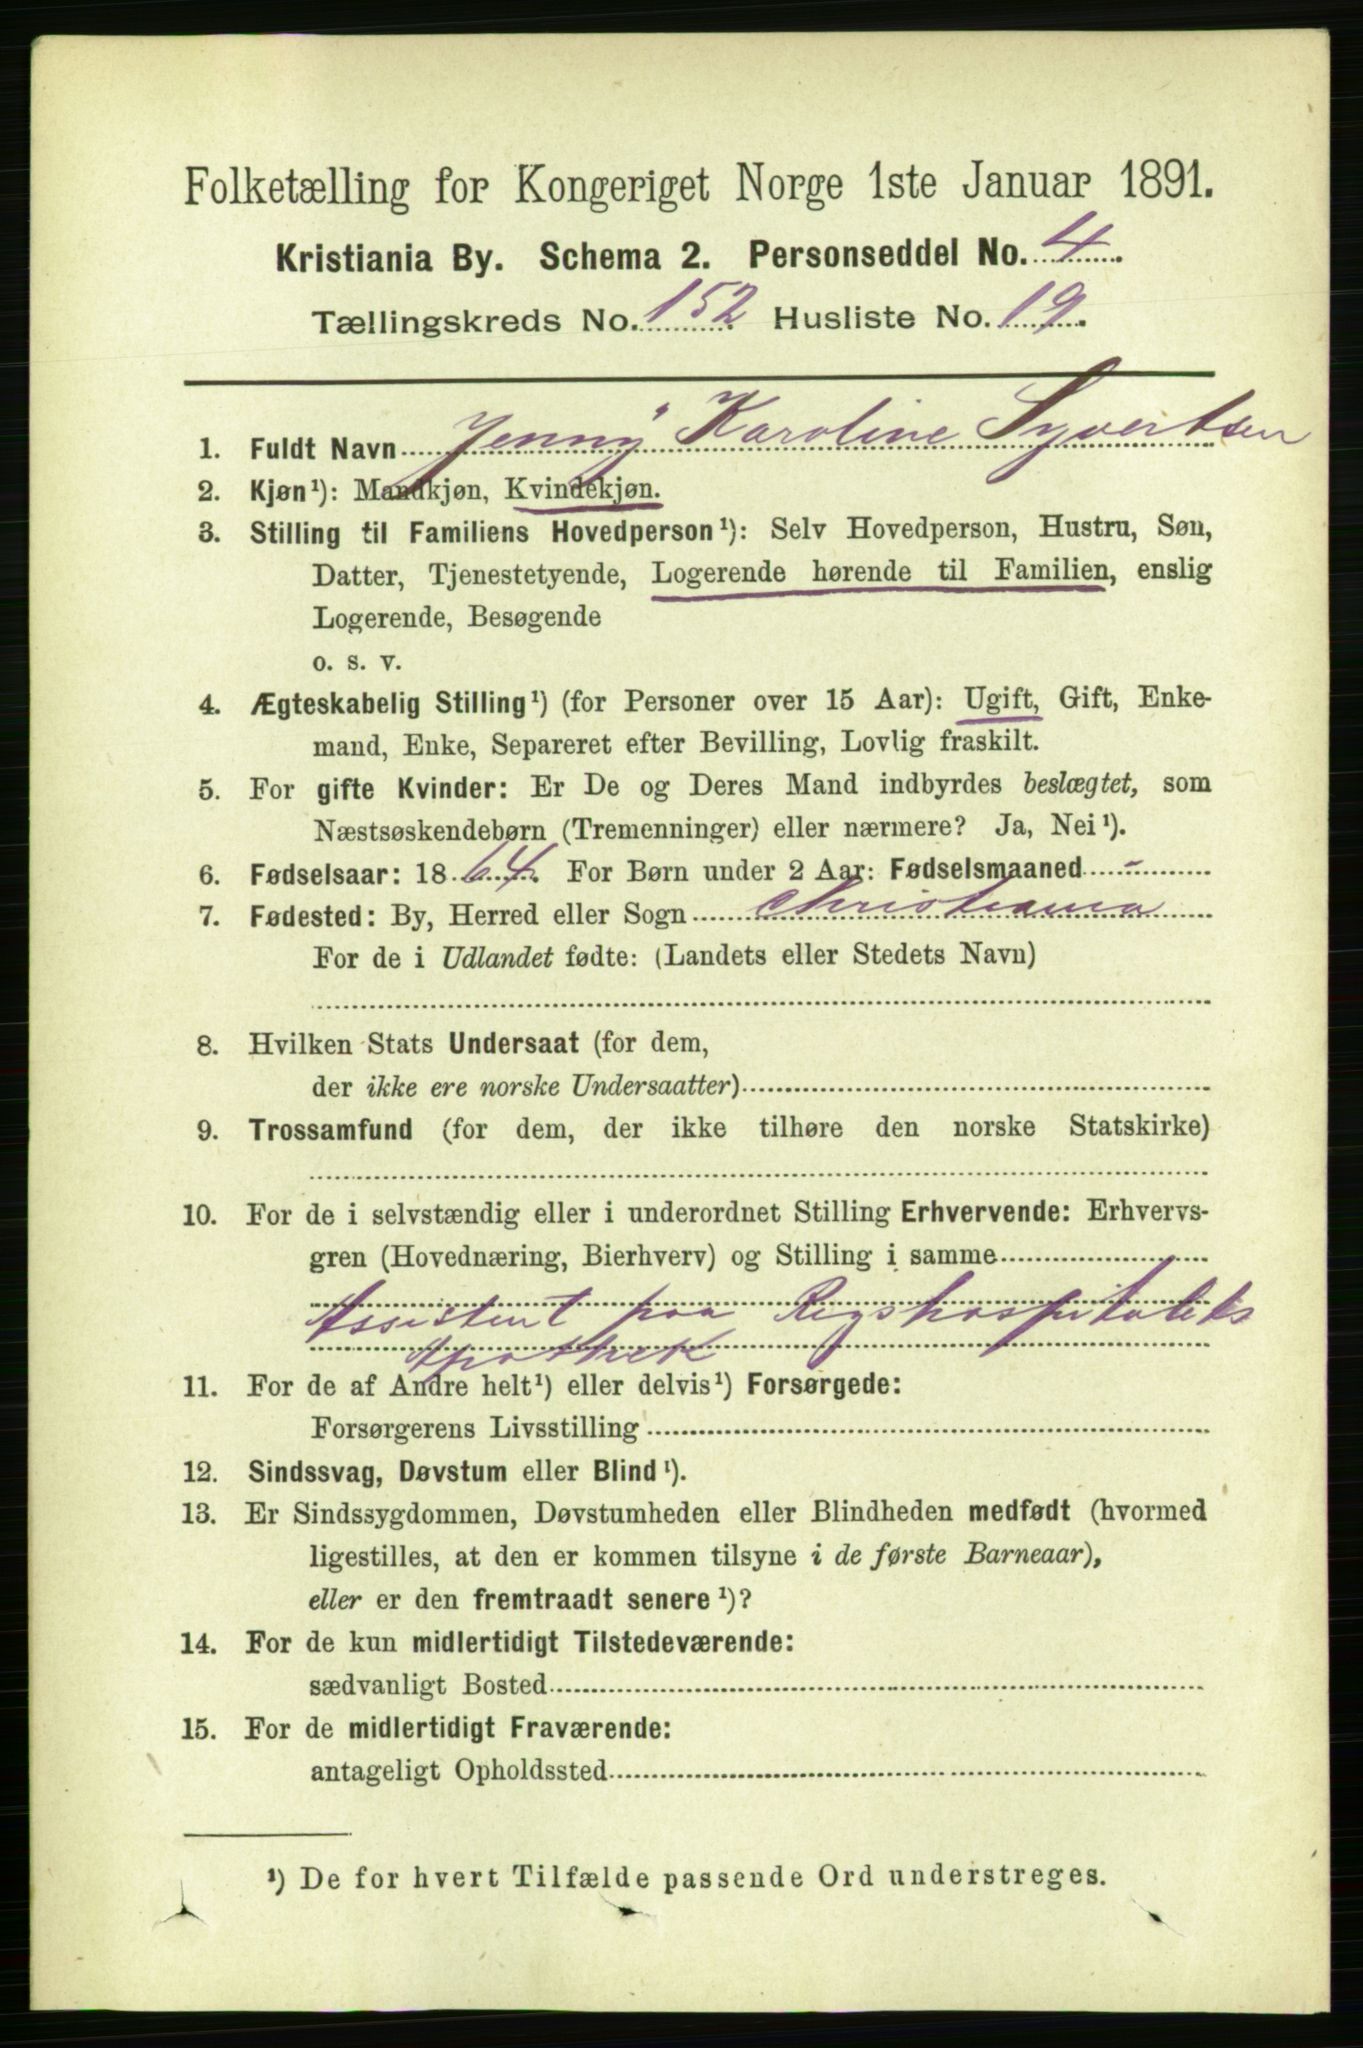 Folketælling for Kongeriget Norge 1ste Januar 1891.
Kristiania By. Schema 2. Personseddel No. 4.
Tællingskreds No. 152 Husliste No. 19.
1. Fuldt Navn Jenny Karoline Syvertsen
2. Kjøn¹): Mandkjøn, Kvindekjøn.
3. Stilling til Familiens Hovedperson¹): Selv Hovedperson, Hustru, Søn,
Datter, Tjenestetyende, Logerende hørende til Familien, enslig
Logerende, Besøgende
o. s. v.
4. Ægteskabelig Stilling¹) (for Personer over 15 Aar): Ugift, Gift, Enke-
mand, Enke, Separeret efter Bevilling, Lovlig fraskilt.
5. For gifte Kvinder: Er De og Deres Mand indbyrdes beslægtet, som
Næstsøskendebørn (Tremenninger) eller nærmere? Ja, Nei¹).
6. Fødselsaar: 1864. For Børn under 2 Aar: Fødselsmaaned -
7. Fødested: By, Herred eller Sogn Christiania
For de i Udlandet fødte: (Landets eller Stedets Navn)
8. Hvilken Stats Undersaat (for dem,
der ikke ere norske Undersaatter)
9. Trossamfund (for dem, der ikke tilhøre den norske Statskirke)
10. For de i selvstændig eller i underordnet Stilling Erhvervende: Erhvervs-
gren (Hovednæring, Bierhverv) og Stilling i samme
Assistent paa Rigshospitalets
Apothek
11. For de af Andre helt¹) eller delvis¹) Forsørgede:
Forsørgerens Livsstilling
12. Sindssvag, Døvstum eller Blind¹).
13. Er Sindssygdommen, Døvstumheden eller Blindheden medfødt (hvormed
ligestilles, at den er kommen tilsyne i de første Barneaar),
eller er den fremtraadt senere¹)?
14. For de kun midlertidigt Tilstedeværende:
sædvanligt Bosted
15. For de midlertidigt Fraværende:
antageligt Opholdssted
¹) De for hvert Tilfælde passende Ord understreges.